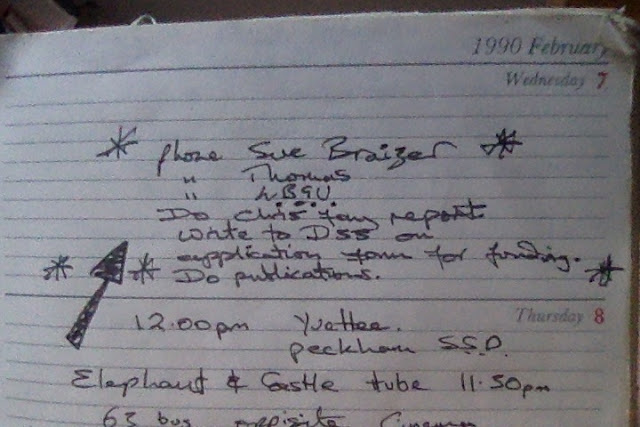 1990 February
Wednesday 7
phone Sue Braizer
" Thomas
" LBGU
Do Chris Tony report
write to DSS on
application form for funding.
Do publications.
Thursday 8
12.00pm Yvettee.
peckham S.S.D.
Elephant & Castle tube 11.50pm
63 bus oppisite Cinema